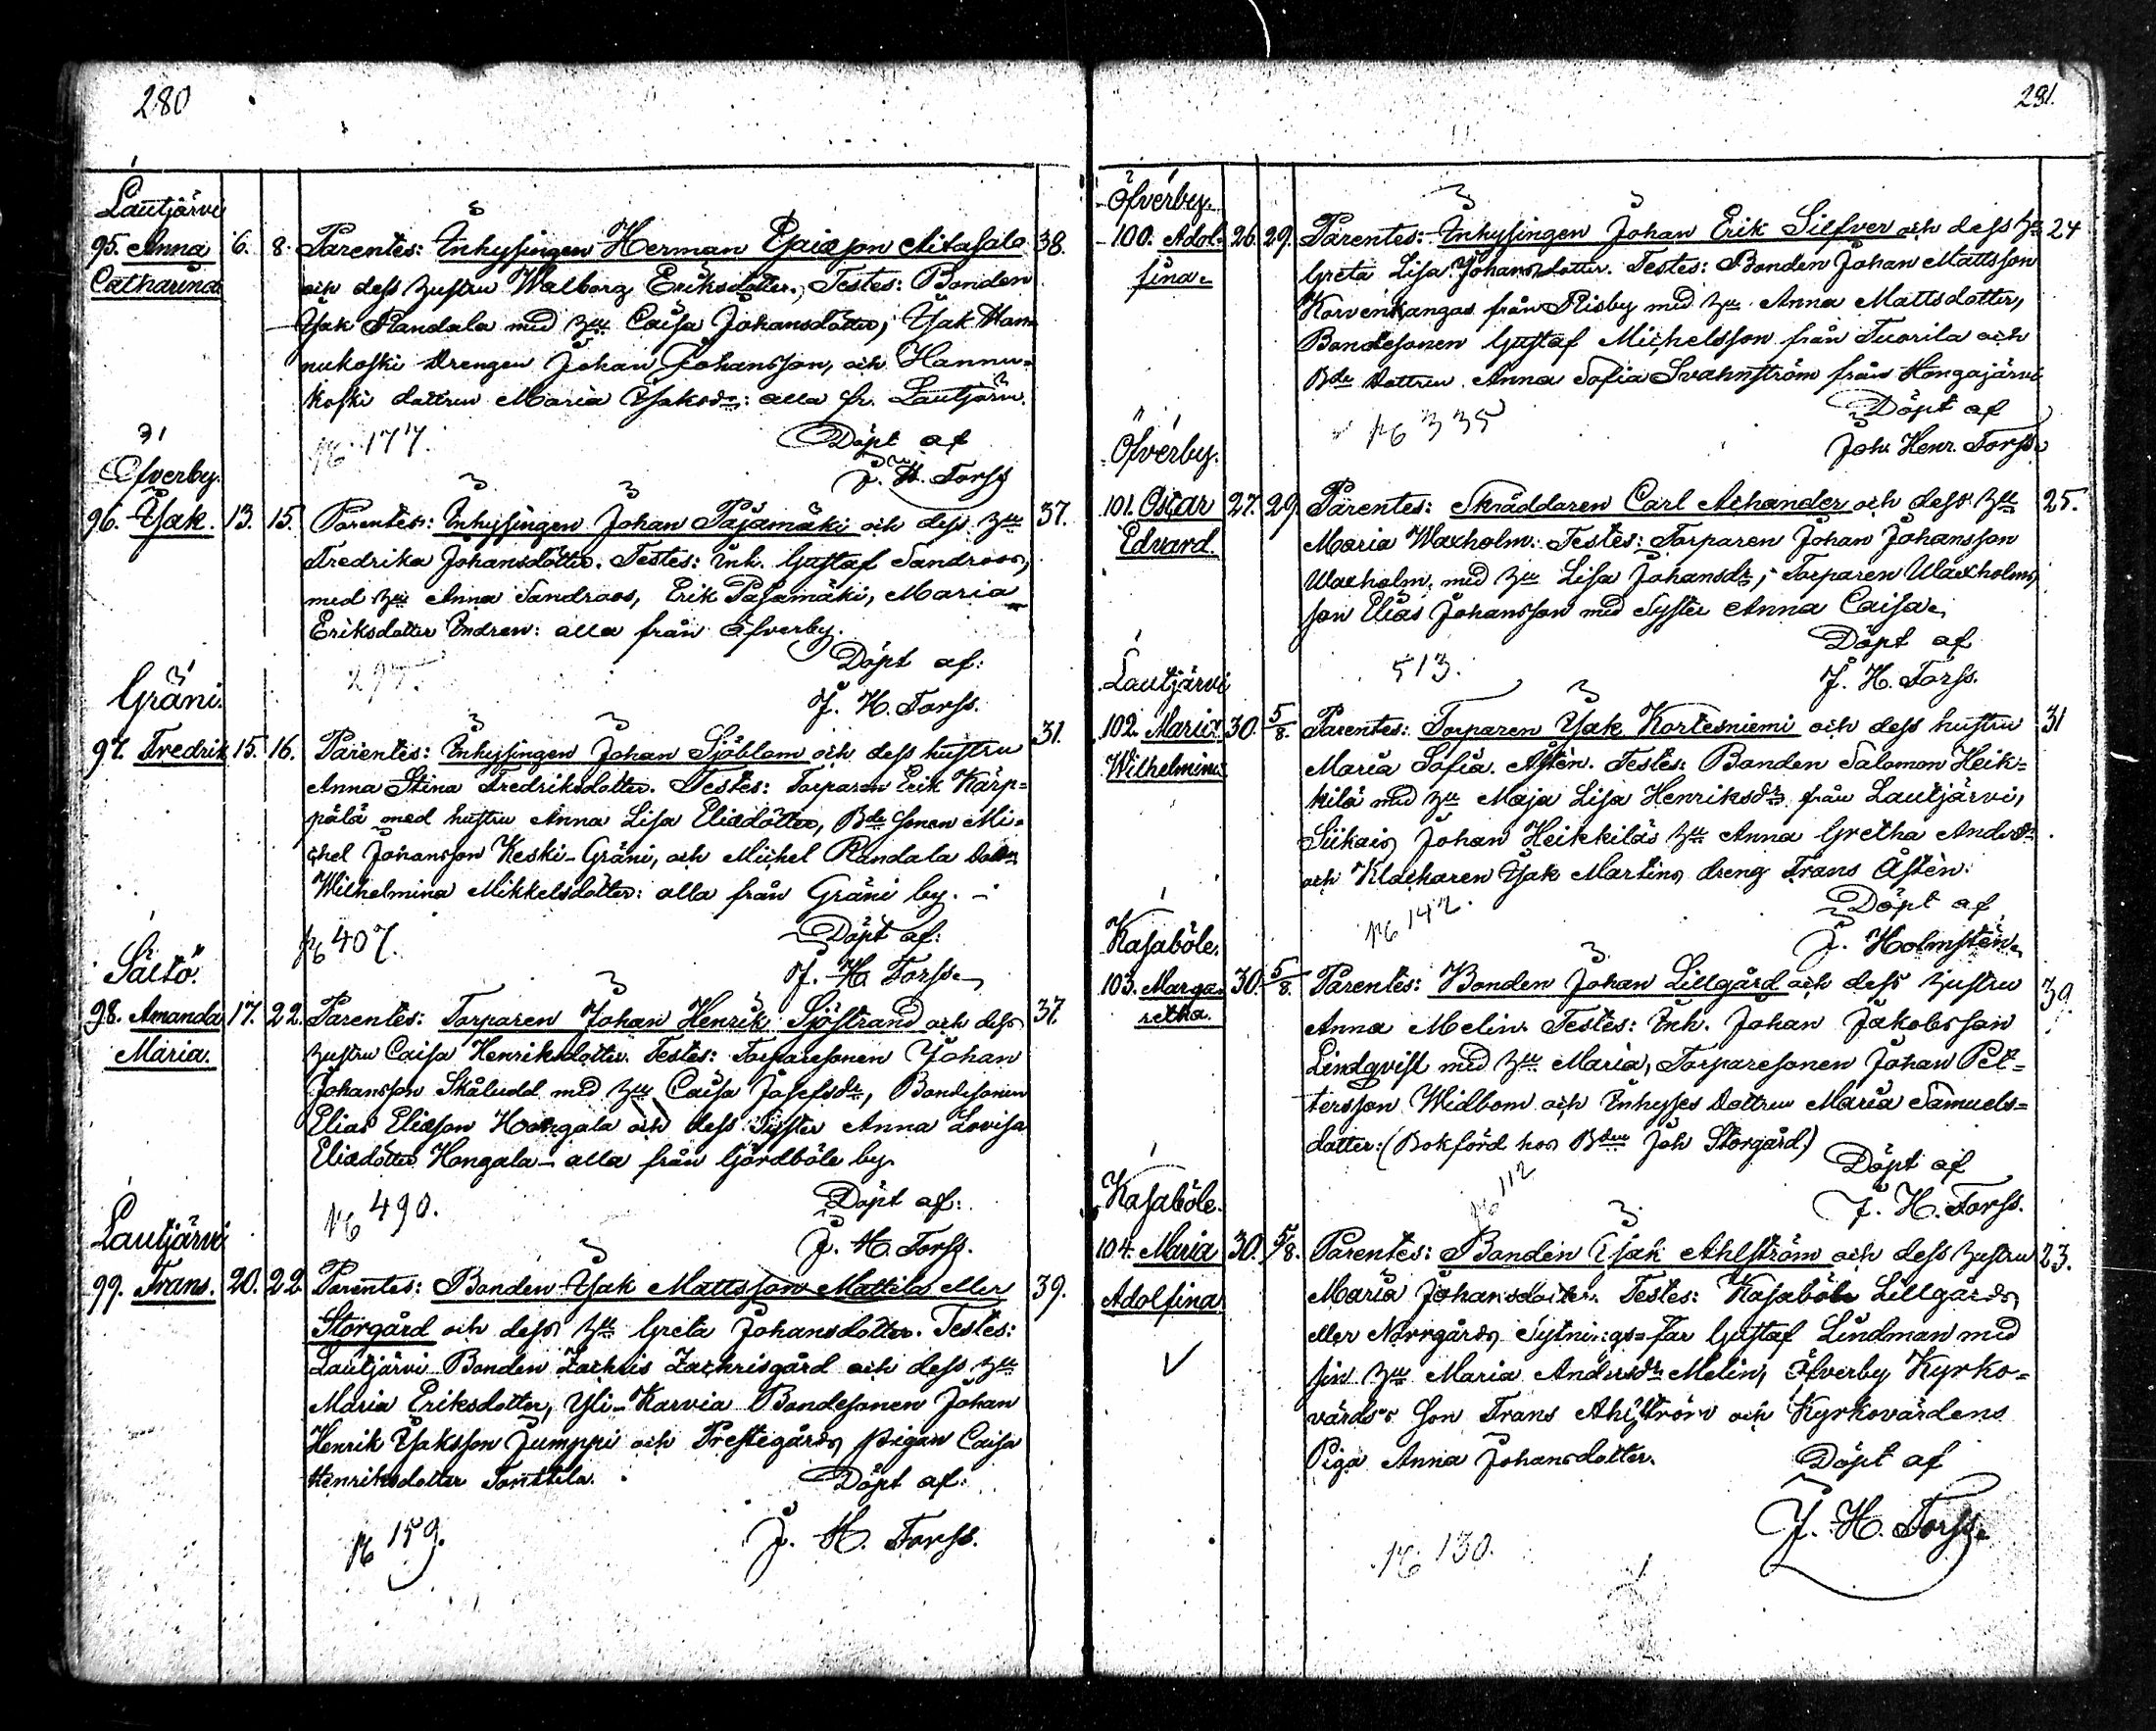 280
Lautjärvi
95. Anna 6. 8. Parentes: Inhysingen Herman Esaiasson Aitasalo 38.
Catharina och dess hustru Walborg Eriksdotter, Testes: Bonden
Isak Randala med hu Caisa Johansdotter, Isak Han=
nukoski drengen Johan Johansson, och Hannu=
koski dottren Maria Isaksdr: alla fr. Lautjärvi.
№ 177. Döpt af
J. H. Forss
Öfverby.
96. Isak. 13. 15. Parentes: Inhysingen Johan Pajamäki och dess hu 37.
Fredrika Johansdotter. Testes: Inh. Gustaf Sandroos,
med hu Anna Sandroos, Erik Pajamäki, Maria
Eriksdotter Indren: alla från Öfverby.
297. Döpt af:
J. H. Forss.
Gräni.
97. Fredrik 15. 16. Parentes: Inhysingen Johan Sjöblom och dess hustru 31.
Anna Stina Fredriksdotter. Testes: Torparen Erik Kärp=
pälä med hustru Anna Lisa Eliædotter, Bde sonen Mi=
chel Johansson Keski-Gräni, och Michel Randala dottr
Wilhelmina Mikkelsdotter: alla från Gräni by. -
№ 407. Döpt af:
J. H. Forss.
Sältö.
98. Amanda 17. 22. Parentes: Torparen Johan Henrik Sjöstrand och dess 37.
Maria. hustru Caisa Henriksdotter. Testes: Torparesonen Johan
Johansson Skåludd med hu Caisa Josefsdr, Bondesonen
Elias Eliæson Hongala och dess Syster Anna Lovisa
Eliædotter Hongala - alla från Gördböle by.
№ 490. Döpt af:
J. H. Forss.
Lautjärvi
99. Frans. 20. 22. Parentes: Bonden Isak Mattsson Mattila eller 39.
Storgård och dess hu Greta Johansdotter. Testes:
Lautjärvi Bonden Zachris Zachrisgård och dess hu
Maria Eriksdotter, Yli-Karvia Bondesonen Johan
Henrik Isaksson Jumppi och Prestegårds pigan Caisa
Henriksdotter Tonttila. Döpt af:
№ 159. J. H. Forss.
281.
Öfverby.
100. Adol= 26. 29. Parentes: Inhysingen Johan Erik Silfver och dess hu 24
fina. Greta Lisa Johansdotter. Testes: Bonden Johan Mattsson
Korvenkangas från Risby med hu Anna Mattsdotter,
Bondesonen Gustaf Michelsson från Tuorila och
Bde dottren Anna Sofia Svahnström från Hongajärvi
№ 335 Döpt af
Joh. Henr. Forss.
Öfverby.
101. Oscar 27. 29. Parentes: Skräddaren Carl Achander och dess hu 25.
Edvard. Maria Waxholm. Testes: Torparen Johan Johansson
Waxholm, med hu Lisa Johansdr, Torparen Waxholms
son Elias Johansson med Syster Anna Caisa.
513. Döpt af
J. H. Forss.
Lautjärvi
102. Maria 30. 5/8. Parentes: Torparen Isak Kortesniemi och dess hustru 31
Wilhelmina Maria Sofia Åstén. Testes: Bonden Salomon Heik=
kilä med hu Maja Lisa Henriksdr från Lautjärvi,
Siikais Johan Heikkiläs hu Anna Gretha Andersdr
och Klockaren Isak Martins dreng Frans Åstén:
№ 142. Döpt af
J. Holmstén.
Kasaböle.
103. Marga= 30. 5/8. Parentes: Bonden Johan Lillgård och dess hustru 39.
retha. Anna Melin. Testes: Inh. Johan Jakobsson
Lindqvist med hu Maria, Torparesonen Johan Pet=
tersson Widbom och Inhyses dottren Maria Samuels=
dotter: (Bokförd hos Bden Joh Storgård)
№ 112 Döpt af
J. H. Forss.
Kasaböle.
104. Maria 30. 5/8. Parentes: Bonden Isak Ahlström och dess hustru 23.
Adolfina Maria Johansdotter. Testes: Kasaböle Lillgårds
eller Norrgårds Sytnings-far Gustaf Lindman med
sin hu Maria Andersdr Melin, Öfverby Kyrko=
värdens son Frans Ahlström och Kyrkovärdens
Piga Anna Johansdotter. Döpt af
№ 130. J. H. Forss.